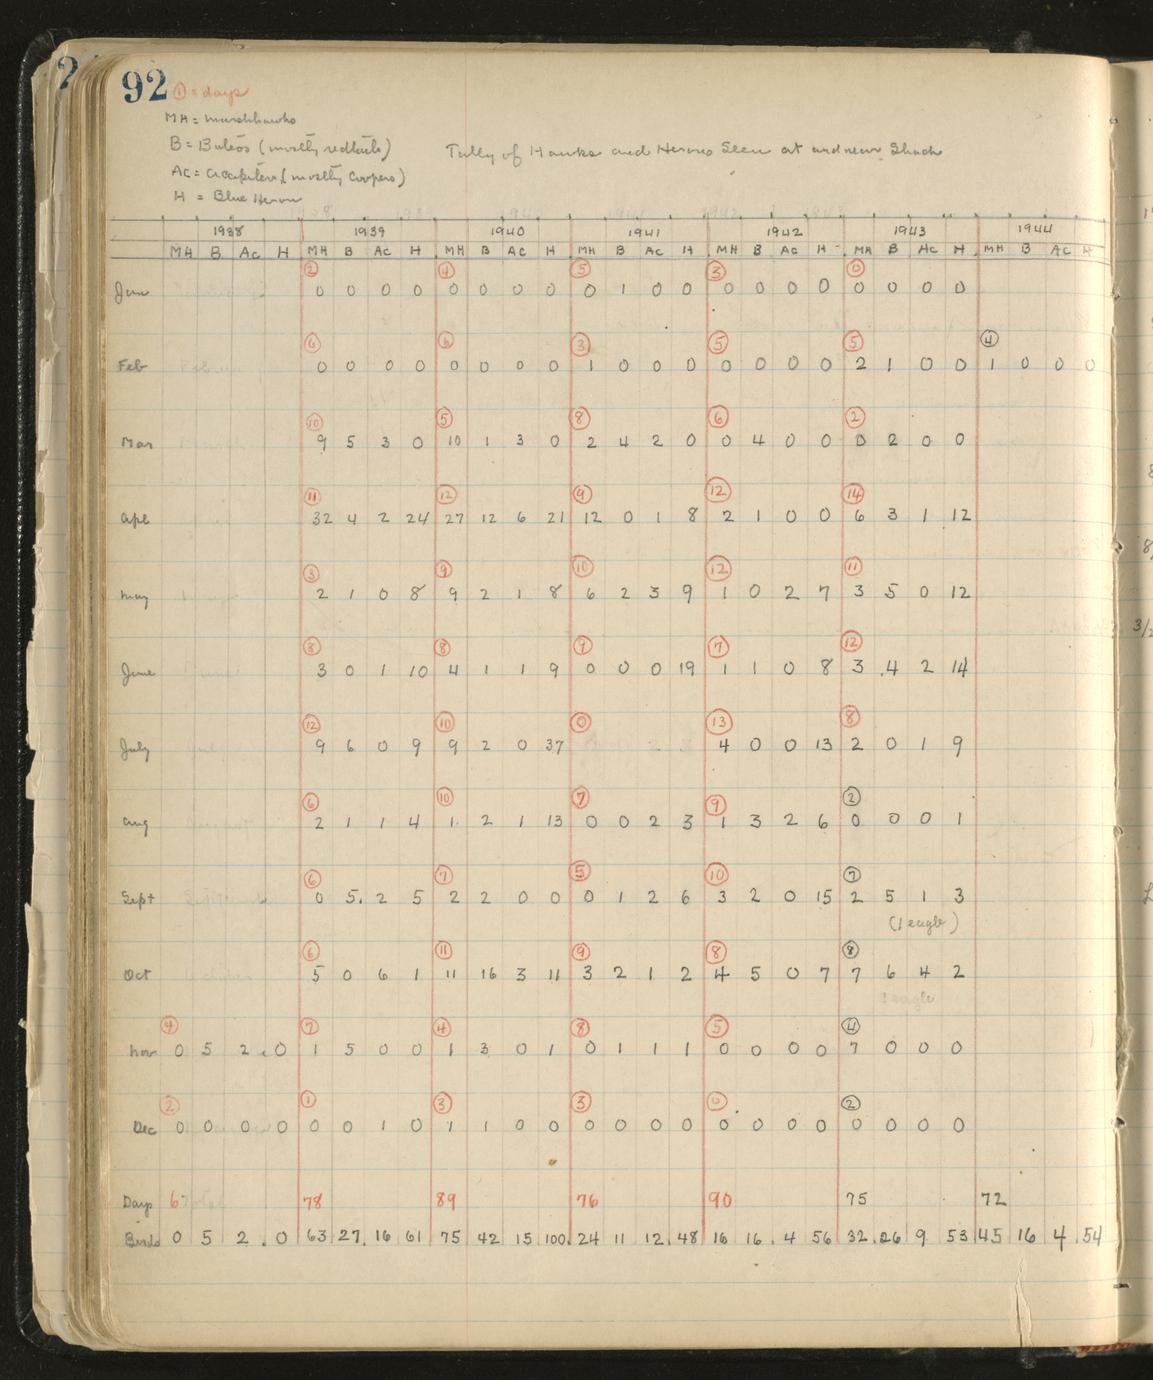 92 ① = days
MH = marshhawks
B = Buteos (mostly redtails)
Tally of Hawks and Herons Seen at and near Shack
Ac = accipiters (mostly Coopers)
H = Blue Heron
1938 1939 1940 1941 1942 1943 1944
MH B Ac H MH B Ac H MH B Ac H MH B Ac H MH B Ac H MH B Ac H MH B Ac H
② ④ ⑤ ③ ⓪
Jan 0 0 0 0 0 0 0 0 0 1 0 0 0 0 0 0 0 0 0 0
⑥ ⑥ ③ ⑤ ⑤ ④
Feb 0 0 0 0 0 0 0 0 1 0 0 0 0 0 0 0 2 1 0 0 1 0 0 0
⑩ ⑤ ⑧ ⑥ ②
Mar 9 5 3 0 10 1 3 0 2 4 2 0 0 4 0 0 0 2 0 0
⑪ ⑫ ⑨ ⑫ ⑭
Apl 32 4 2 24 27 12 6 21 12 0 1 8 2 1 0 0 6 3 1 12
③ ⑨ ⑩ ⑫ ⑪
May 2 1 0 8 9 2 1 8 6 2 3 9 1 0 2 7 3 5 0 12
⑧ ⑧ ⑨ ⑦ ⑫
June 3 0 1 10 4 1 1 9 0 0 0 19 1 1 0 8 3 4 2 14
⑫ ⑩ ⓪ ⑬ ⑧
July 9 6 0 9 9 2 0 37 4 0 0 13 2 0 1 9
⑥ ⑩ ⑦ ⑨ ②
Aug 2 1 1 4 1 2 1 13 0 0 2 3 1 3 2 6 0 0 0 1
⑥ ⑦ ⑤ ⑩ ⑦
Sept 0 5 2 5 2 2 0 0 0 1 2 6 3 2 0 15 2 5 1 3
(1 eagle)
⑥ ⑪ ⑨ ⑧ ⑧
Oct 5 0 6 1 11 16 3 11 3 2 1 2 4 5 0 7 7 6 4 2
④ ⑦ ④ ⑧ ⑤ ④
Nov 0 5 2 0 1 5 0 0 1 3 0 1 0 1 1 1 0 0 0 0 7 0 0 0
② ① ③ ③ ⓪ ②
Dec 0 0 0 0 0 0 1 0 1 1 0 0 0 0 0 0 0 0 0 0 0 0 0 0
Days 6 78 89 76 90 75 72
Birds 0 5 2 0 63 27 16 61 75 42 15 100 24 11 12 48 16 16 4 56 32 26 9 53 45 16 4 54